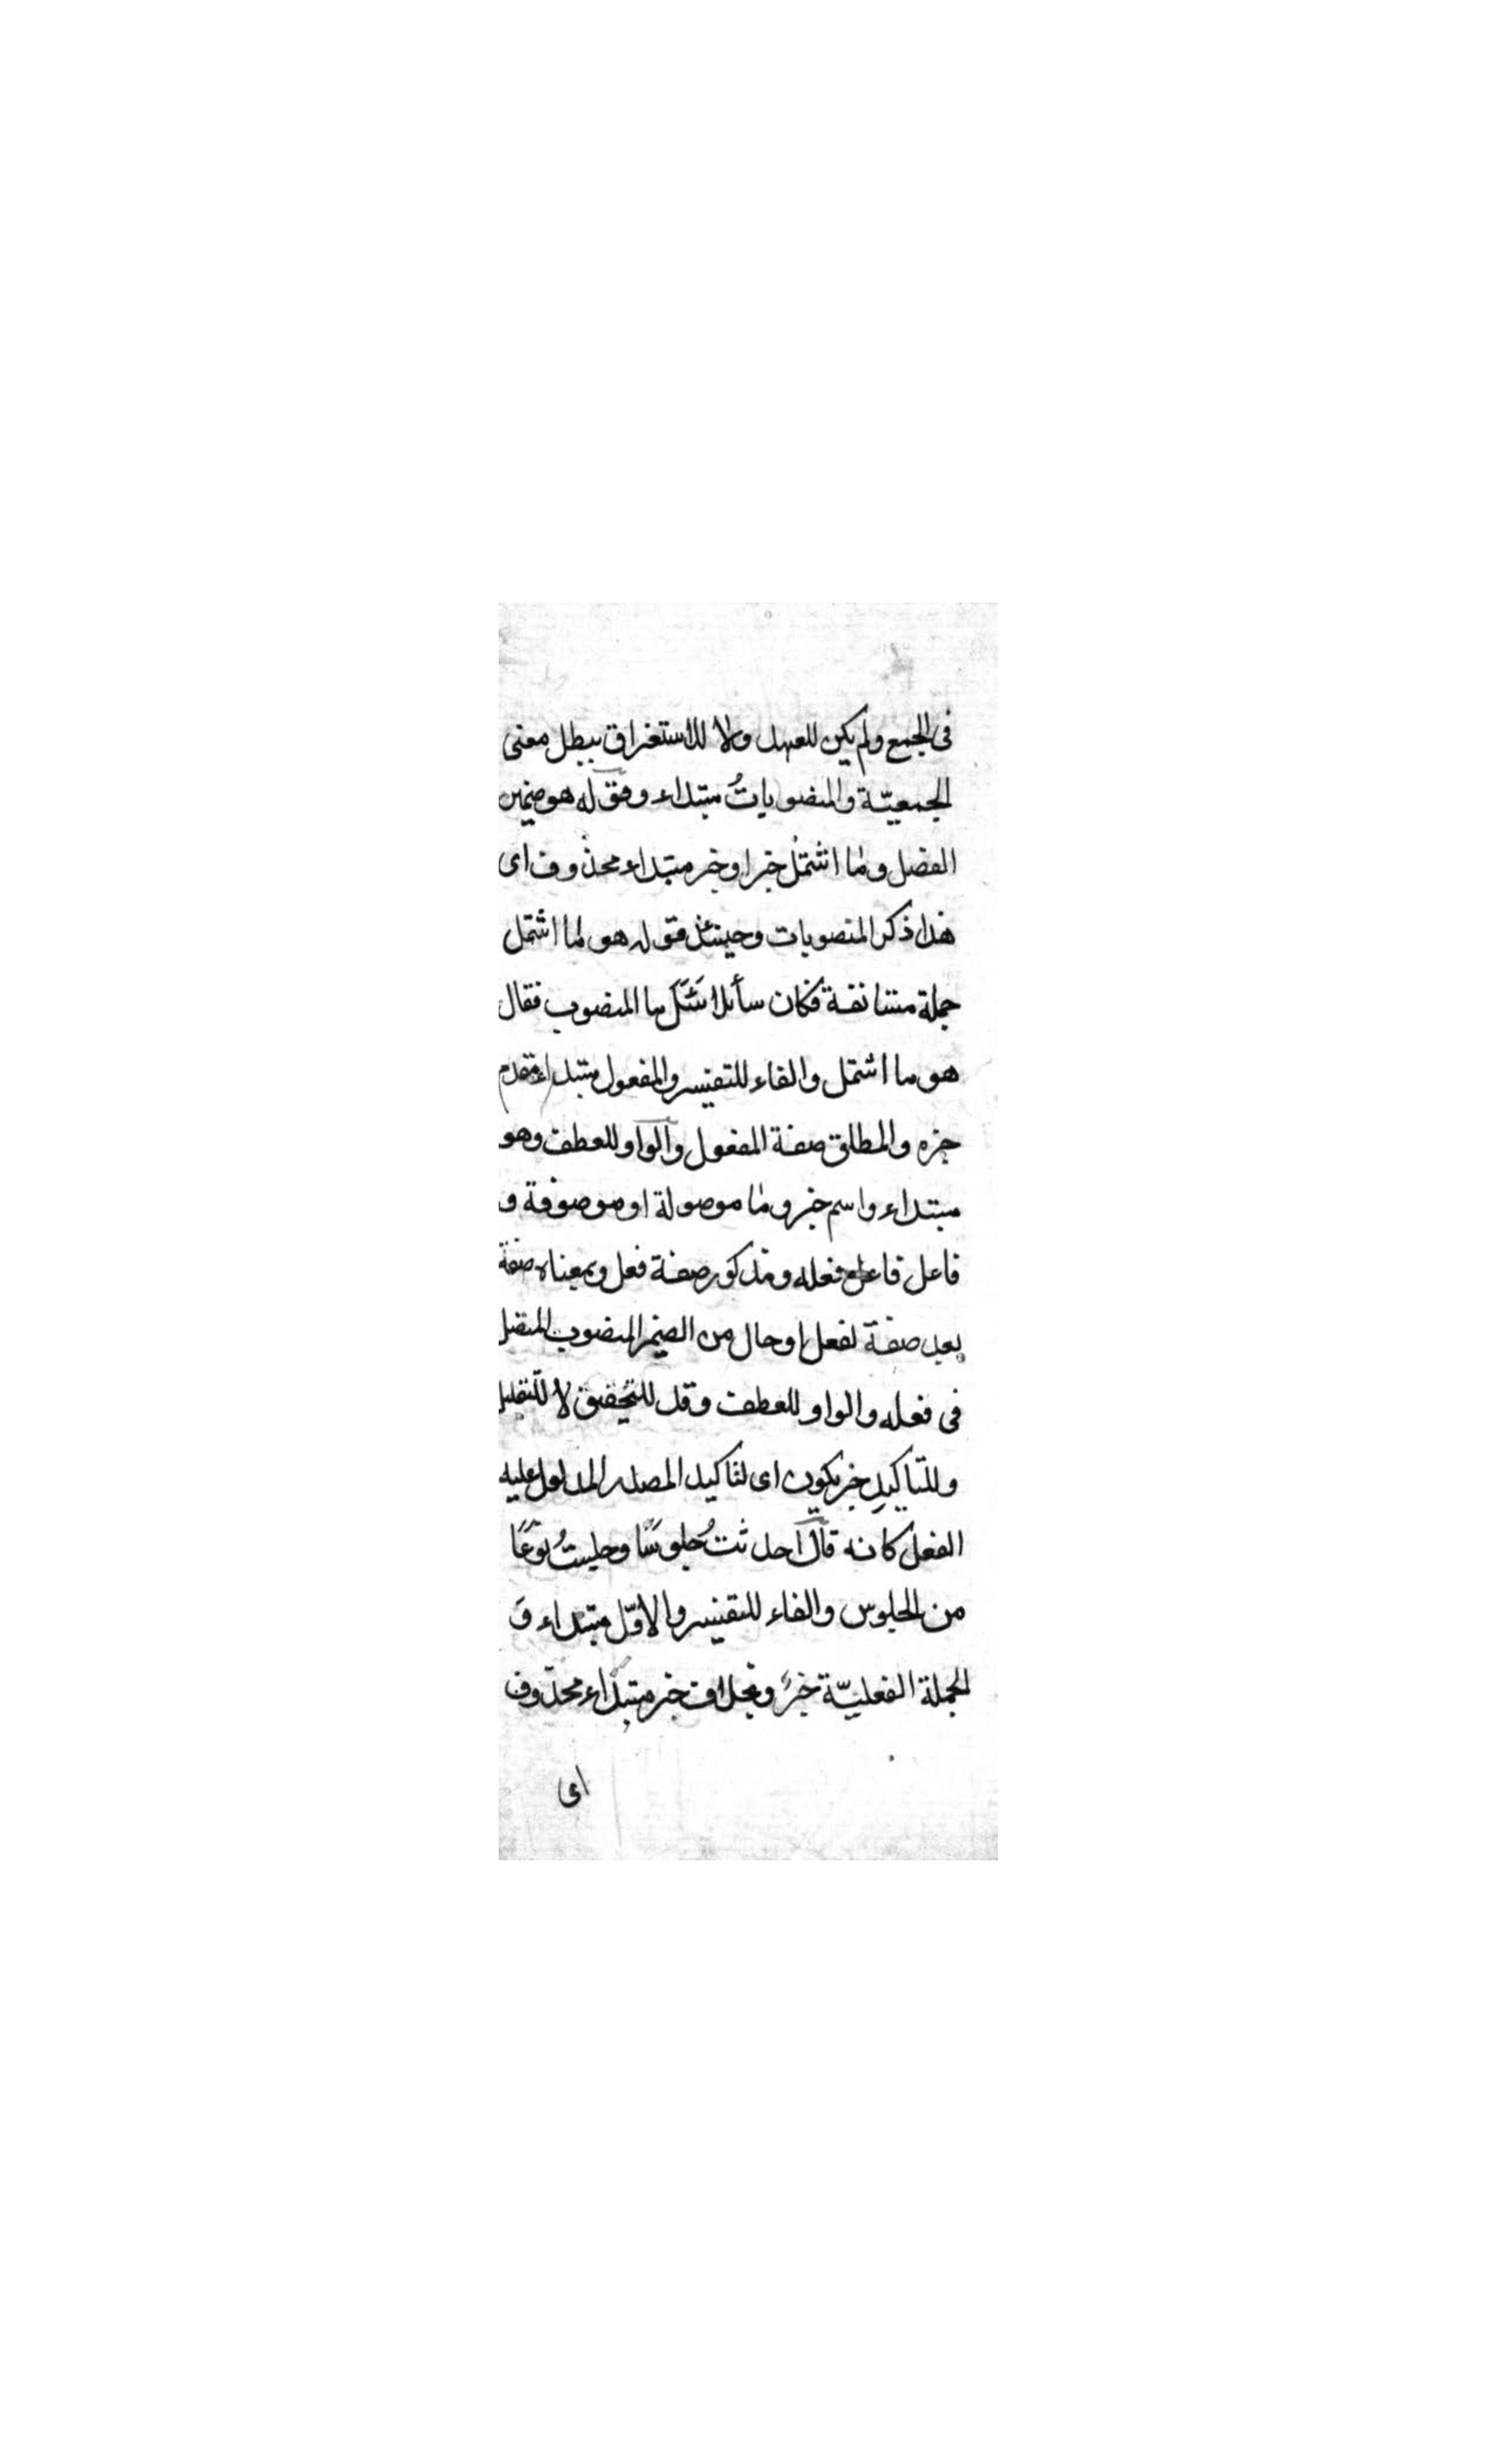 فى الجمع ولم يكن للعهد ولا للاستغراق يبطل معنى
الجمعيّة والمنصوباتُ مبتداء وقوله هو ضمير
الفصل وما اشتمل خبر او خبر مبتداء محذوف اى
هذا ذكر المنصوبات وحينئذ فقوله هو ما اشتمل
جملة مستانفة فكان سائلا سَئَل ما المنصوب فقال
هو ما اشتمل والفاء للتفسير والمفعول مبتداء مقدم
خبره والمطلق صفة المفعول والواو للعطف وهو
مبتداء واسم خبر وما موصولة او موصوفة و
فاعل فاعل فعله ومذكور صفة فعل وبمعناه صفة
بعد صفة لفعل او حال من الضمير المنصوب المتصل
فى فعله والواو للعطف وقد للتحقيق لا للتقليل
وللتاكيدِ خبر يكون اى لتاكيد المصدر المدلول عليه
الفعل كانه قال احدثتُ جلوسًا وجلستُ نوعًا
من الجلوس والفاء للتفسير والاوّل مبتداء وَ
الجملة الفعليّة خبرٌ وبخلاف خبر مبتداء محذوف
اى